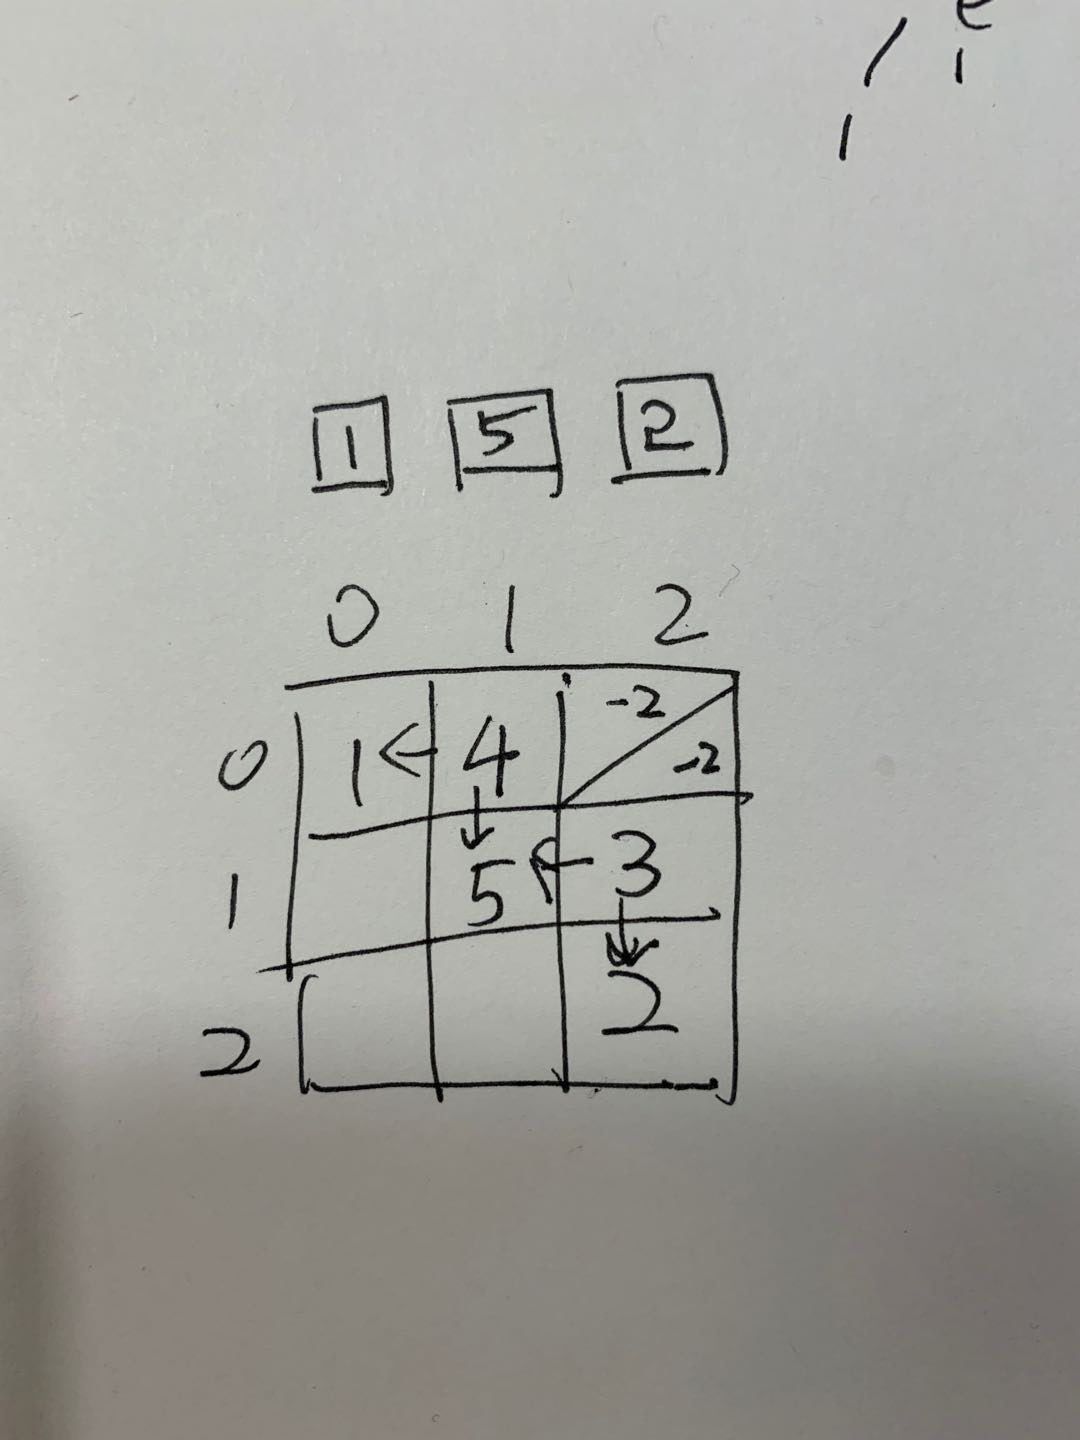 1 5 2
0 1 2
0 1 ← 4 -2 -2
1 5 ← 3
2 2